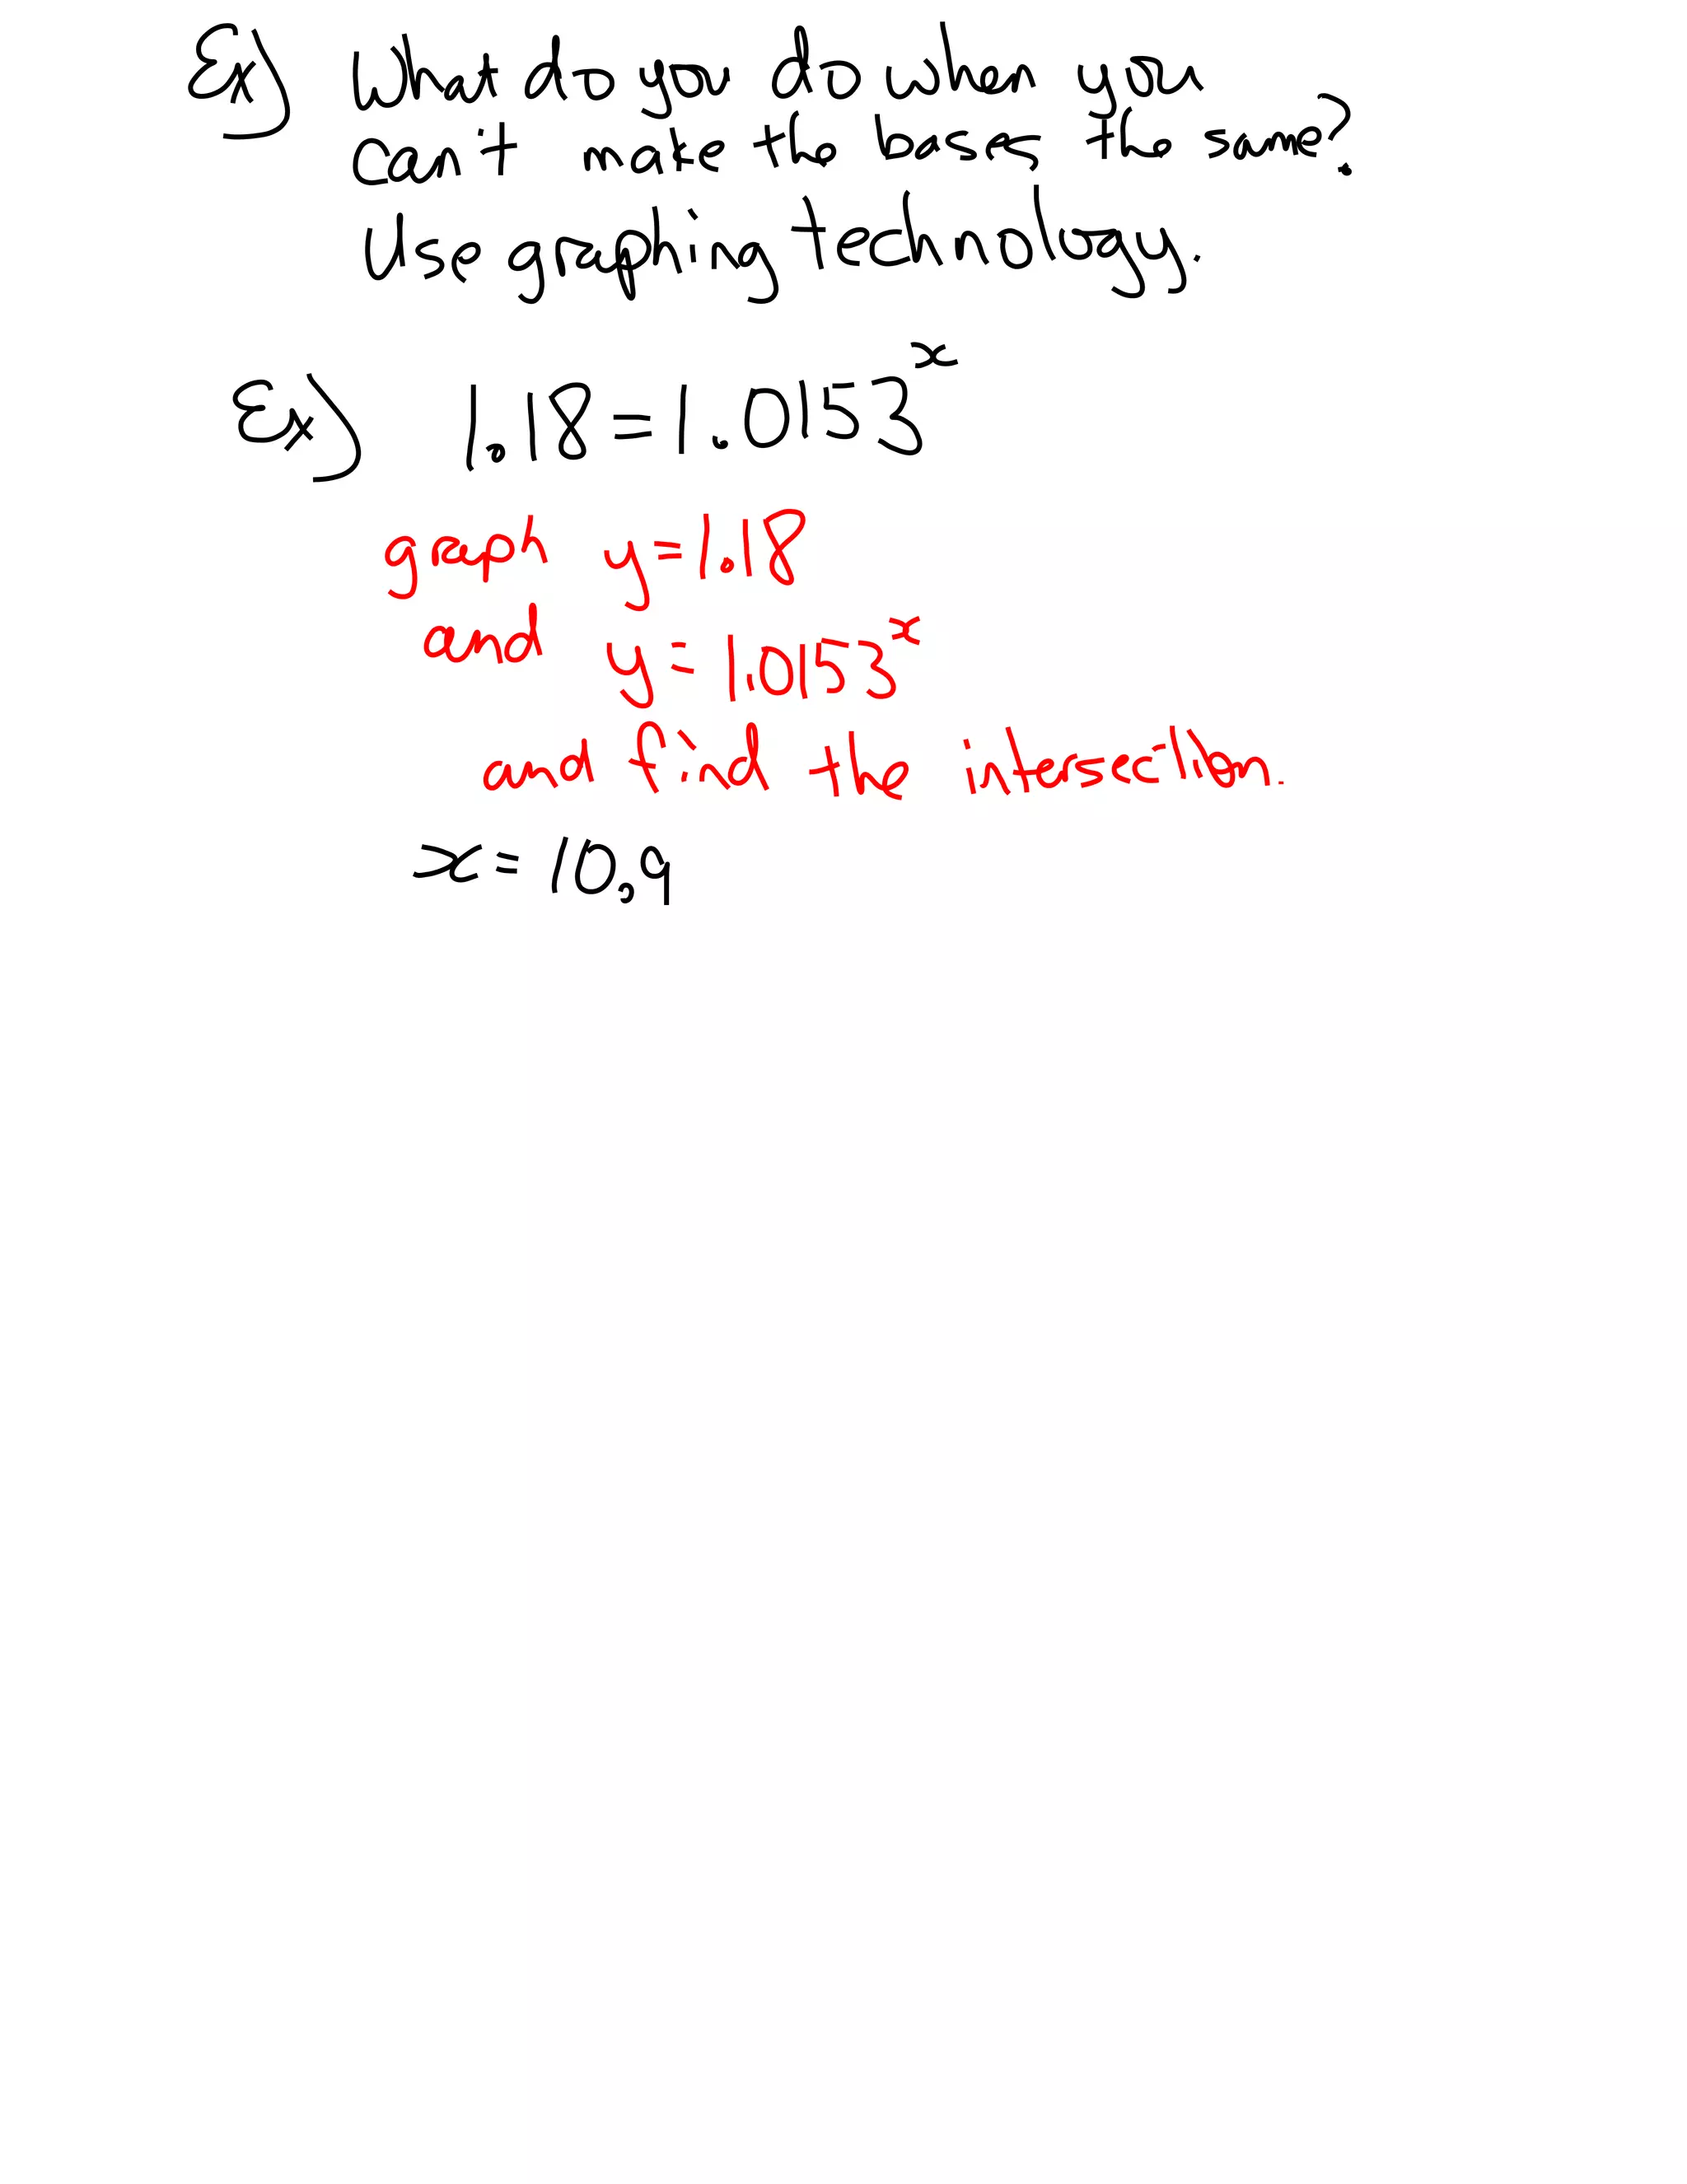 Ex) What do you do when you
can't make the bases the same?
Use graphing technology.
Ex) 1.18 = 1.0153^x
graph y = 1.18
and y = 1.0153^x
and find the intersection.
x = 10.9